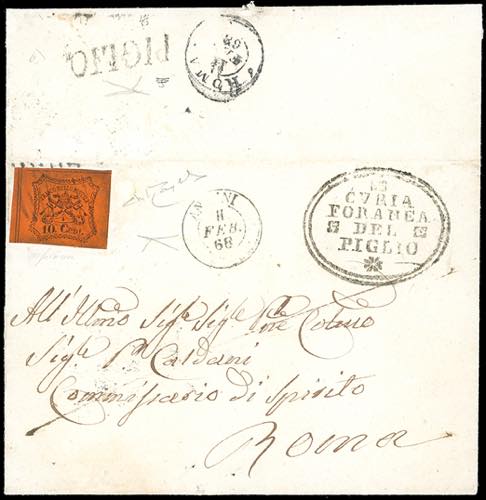 PIGLIO
ROMA
68
10 Cent.
ANAGNI
11
FEB.
68
CVRIA
FORANEA
DEL
PIGLIO
All'Illmo Sigre Sigre Pne Colmo
Sigre Caldani
Commissario di Spirito
Roma